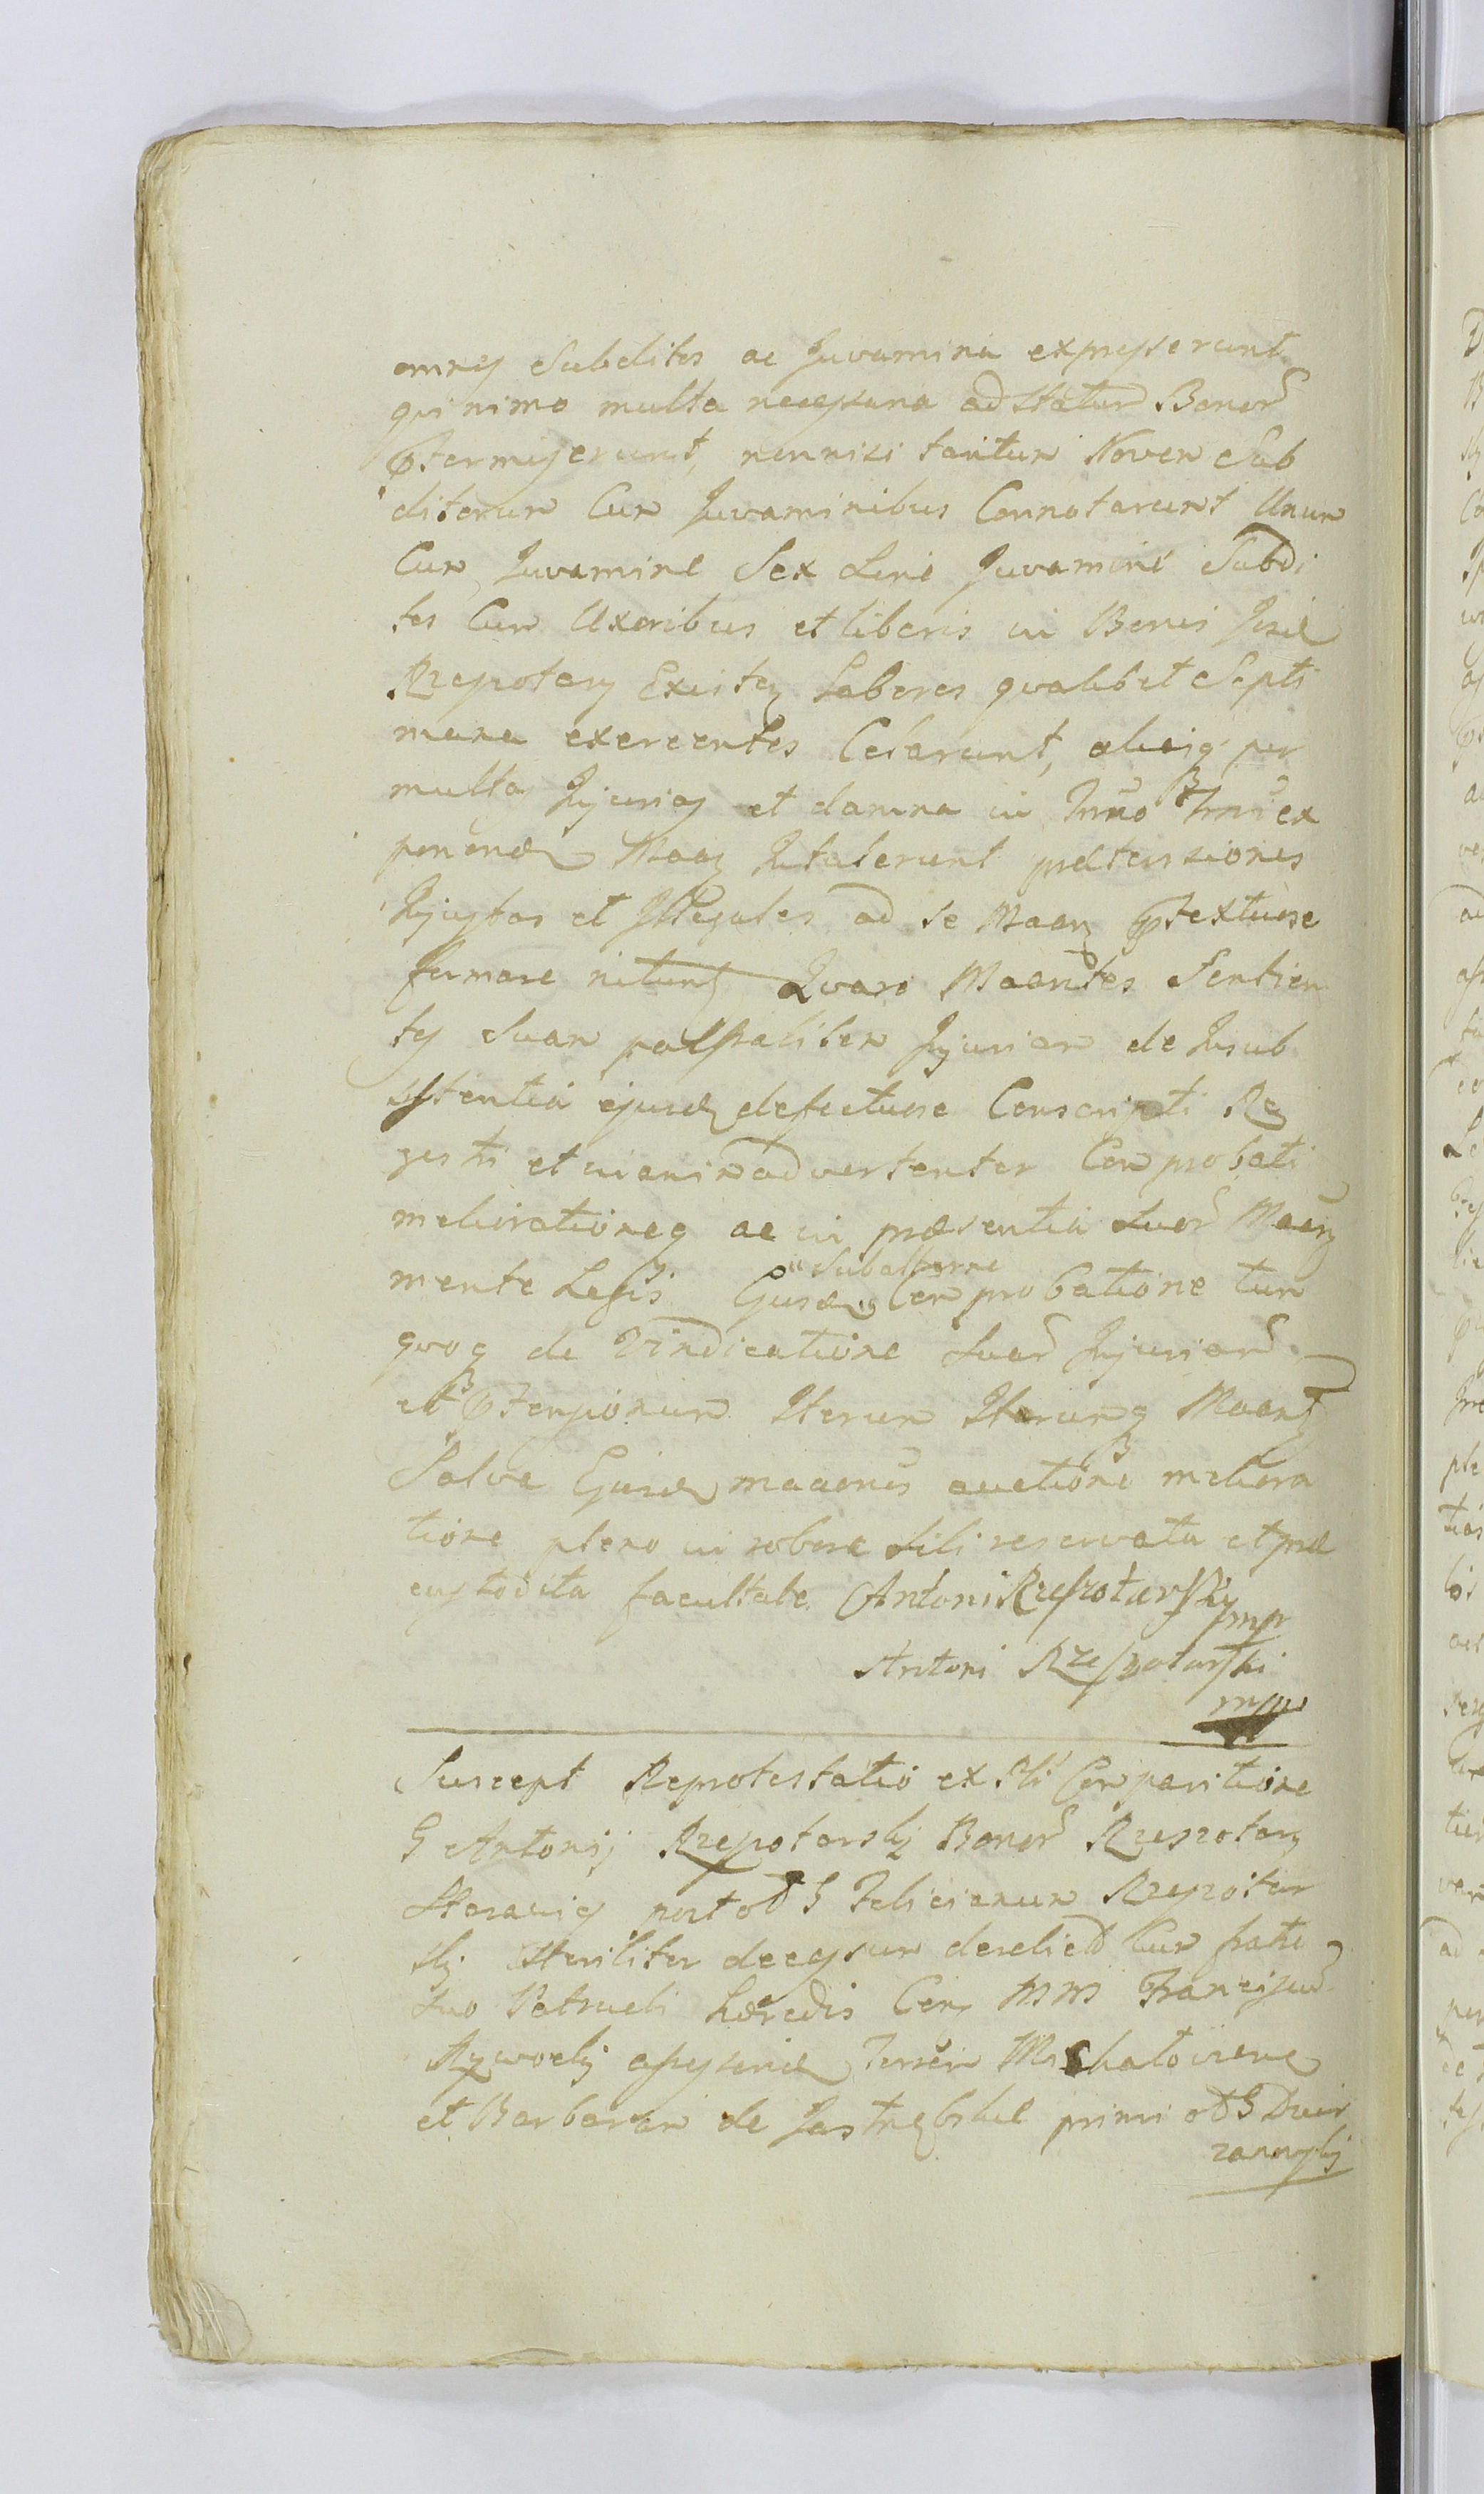 omnes Subditos ac Juvamina expresserunt
qvinimo multa necessaria ad Statum Bonor
Ptermiserunt, nonnisi tantum Novem Sub
ditorum Cum Juvaminibus Connotarunt Unum
Cum Juvamine Sex Sine Juvamine Subdi
tos Cum Uxoribus et liberis in Bonis
Existen Labores qvalibet Septi
mana exercentes Celarunt, aliasq per
multas Injurias et damna in ex
ponend Maan Intulerunt prætensiones
Injustas et Illegales ad se Maan Ptextuose
formare nitunt Qvare Maantes Sentien
tes Suam palpabiliter Injuriam de Insub
sistentia ejusd defectuose Conscripti Re
gestri et inanimadvertenter Comprobati
meliorationeq ac in præsentia Suor Maan
mente Legis Ejusd Subalterne Comprobatione tum
qvoq de Vindicatione Suar Injuriar
et Iterum Iterumq Maant
Salva Ejusd maaonis auctione meliora
tione pleno in robore Sibi reservata et præ
custodita facultate. Antoni Rzeszotarsky
mp
Antoni Rzeszotarski
mpp
Suscept Reprotestatio ex Comparitione
G Antonij Rzeszotarskj Bonor Rzeszotary
post od G Felicianum Rzeszotar
skj Steriliter decessum derelict Cum fratre
Suo Petrueli hæredis Con MM Franciscum
et Barbaram de Jastrzębskie primi od G Dwir
zanowskj